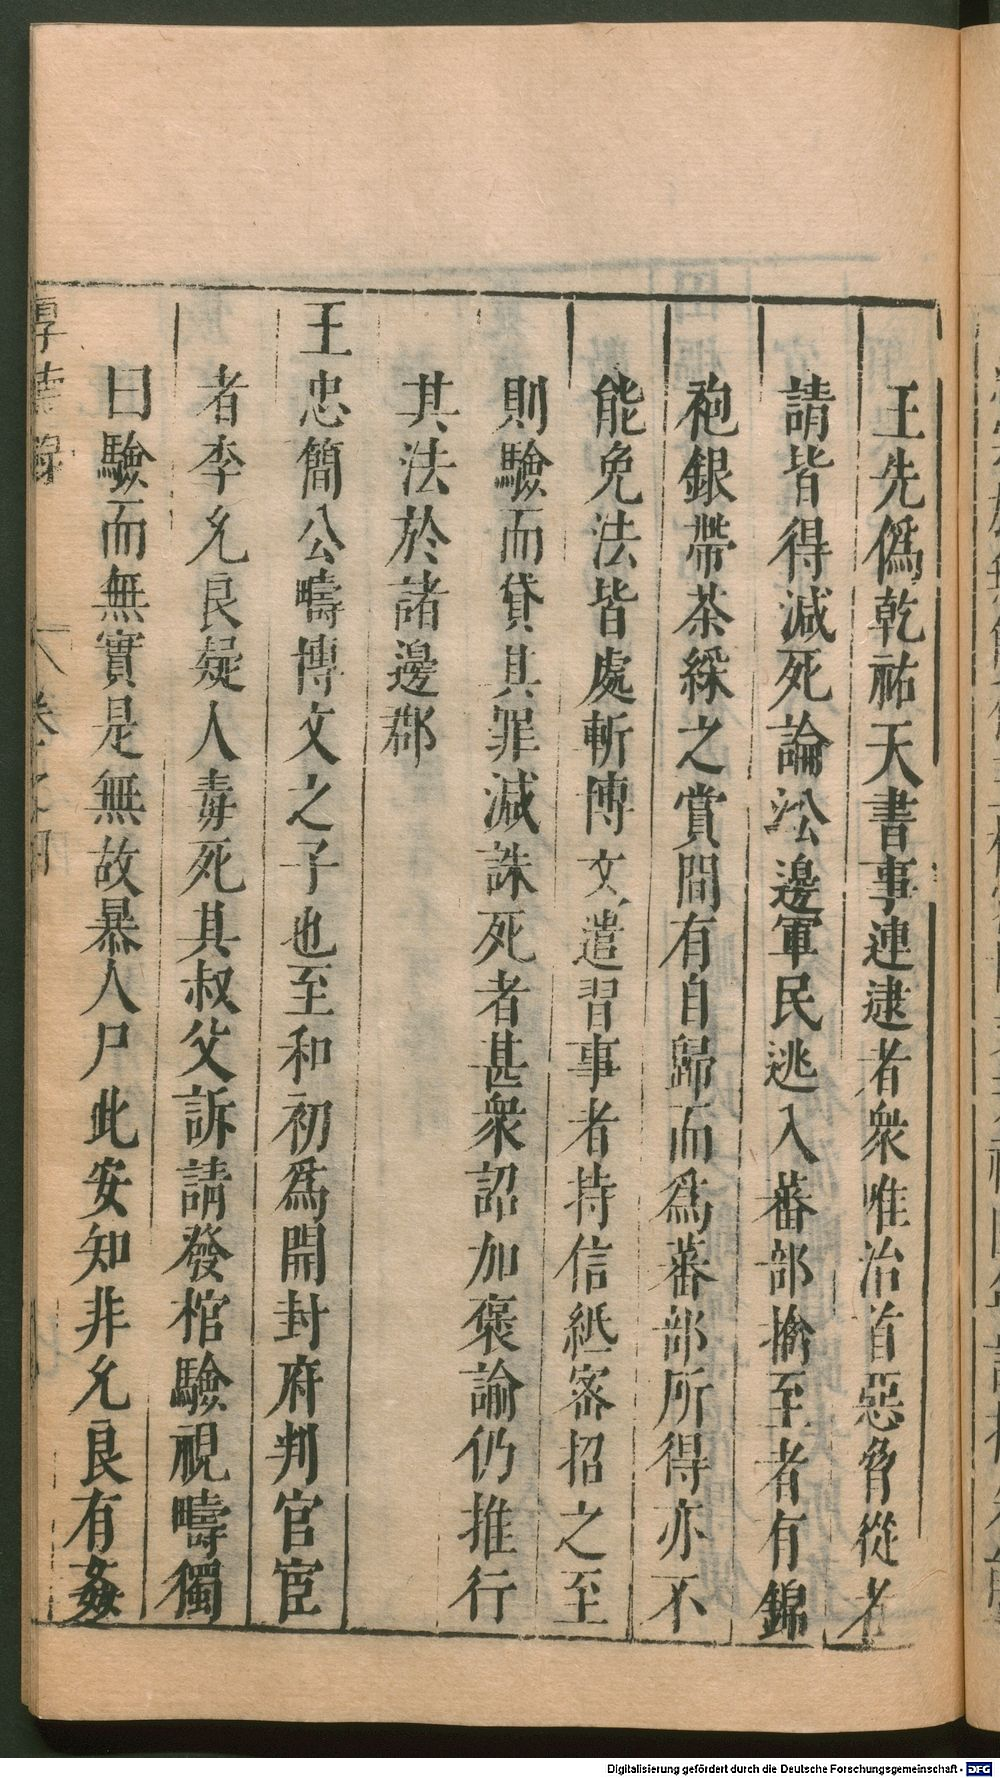 王先僞乾祐天書事連逮者衆唯治首惡脅從者
請皆得減死論㳂邊軍民逃入蕃部擒至者有錦
袍銀帶茶綵之賞間有自歸而爲蕃部所得亦不
能免法皆處斬博文遣習事者持信紙密招之至
則驗而貸其罪減誅死者甚衆詔加褒諭仍推行
其法於諸邊郡
王忠簡公疇博文之子也至和初爲開封府判官宦
者李允良疑人毒死其叔父訴請發棺驗視疇獨
曰驗而無實是無故暴人尸此安知非允良有姦
厚德錄
卷
Digitalisierung gefördert durch die Deutsche Forschungsgemeinschaft - DFG